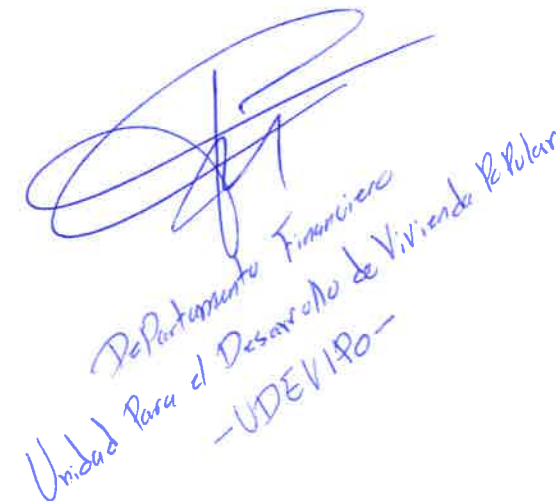 Departamento Financiero
Unidad Para el Desarrollo de Vivienda Popular
-UDEVIPO-